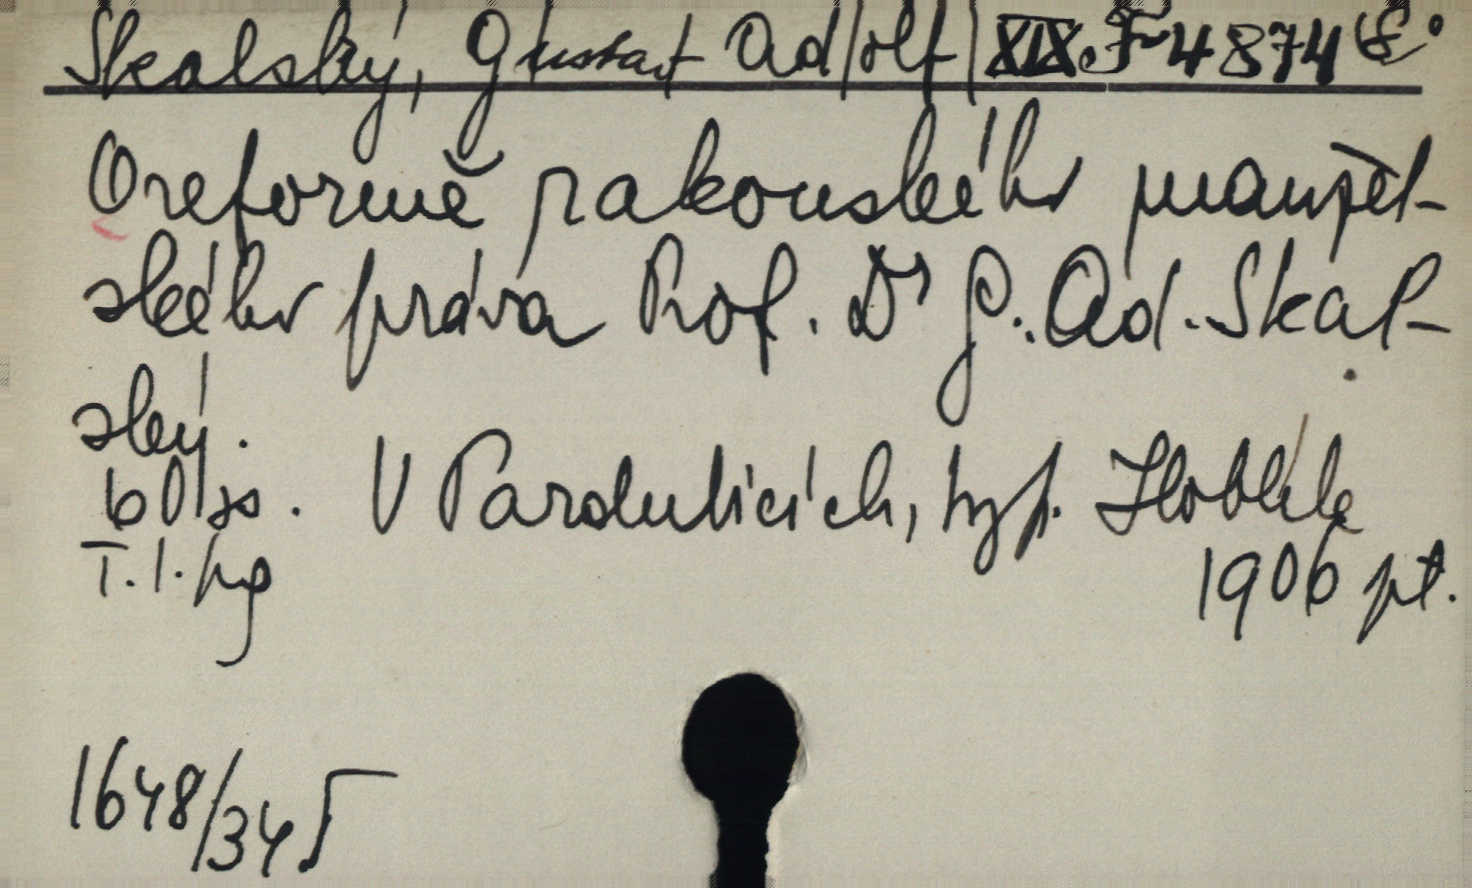 Skalský, Gustav Adolf XIX.F 4874
O reformě rakouského manžel-
ského práva Prof. Dr G. Ad. Skal-
ský.
60 ss. V Pardubicích, typ. Hoblík
1906 pt.
1648/34